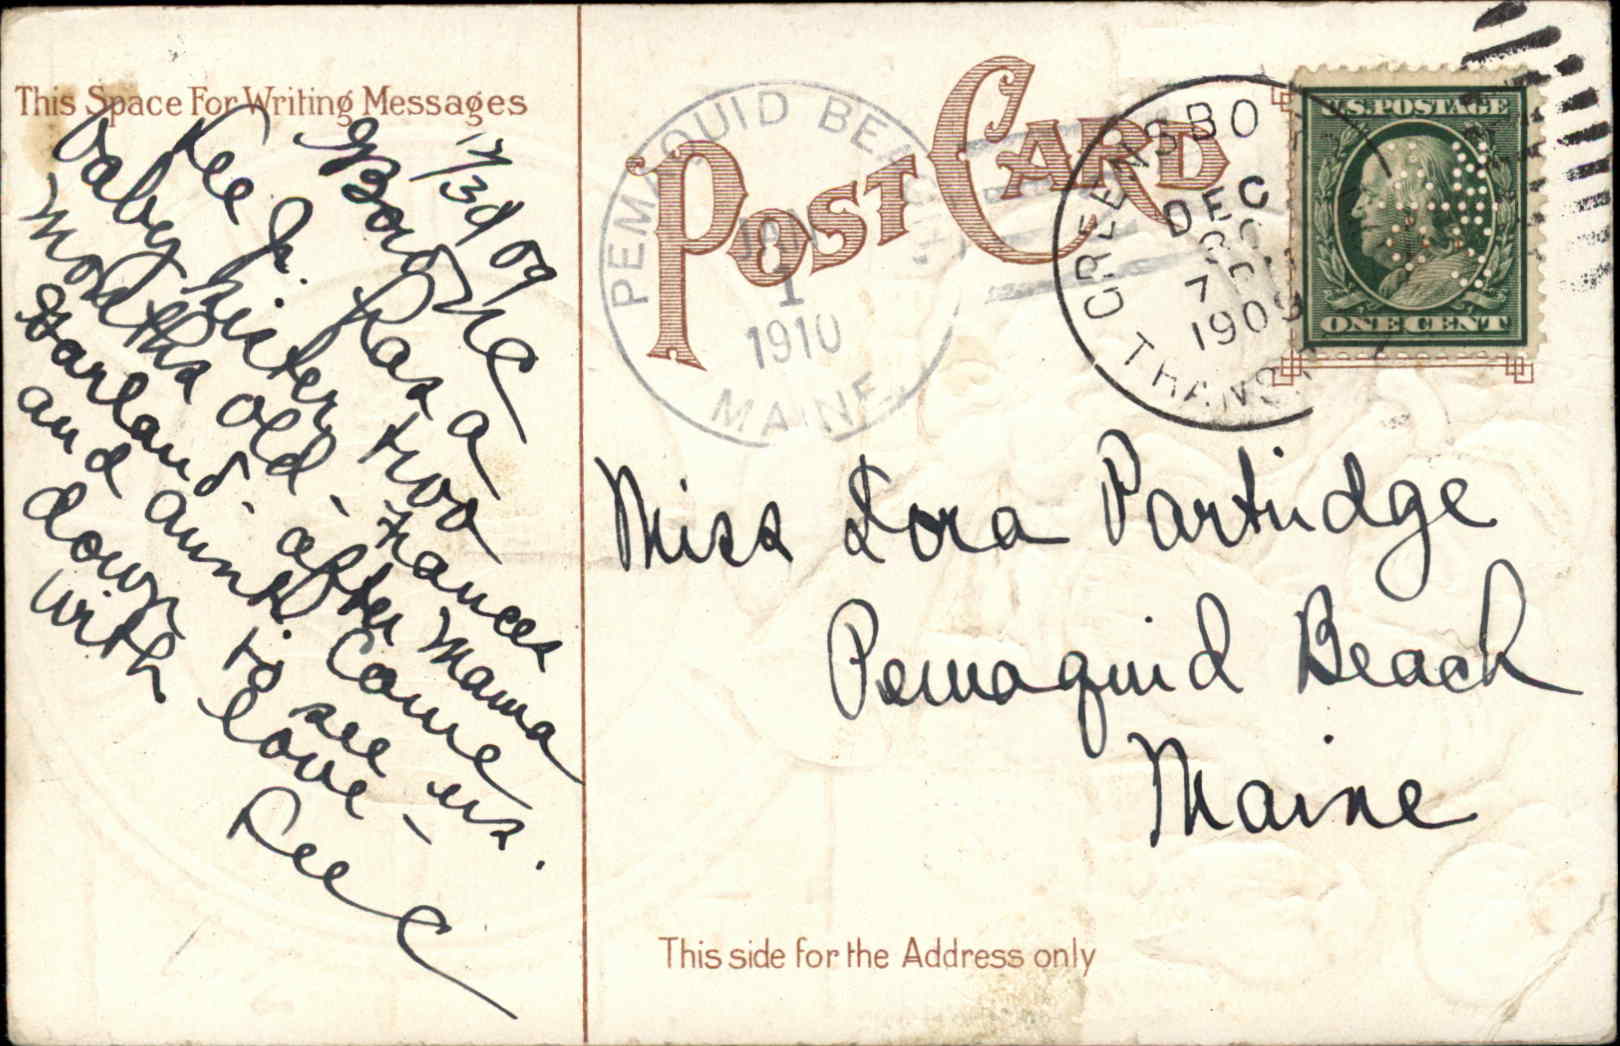 This Space For Writing Messages
12/30/09
G'Boro N C
Lee Jr. has a
baby sister two
months old - Frances
Garland. after Mama
and aunt. Come
down to see us.
with love -
Lee C
POST CARD
PEMAQUID BEACH
JAN
1
1910
MAINE
GREENSBO
DEC
30
7 PM
1909
TRANSI
U.S. POSTAGE
ONE CENT
Miss Lora Partridge
Pemaquid Beach
Maine
This side for the Address only